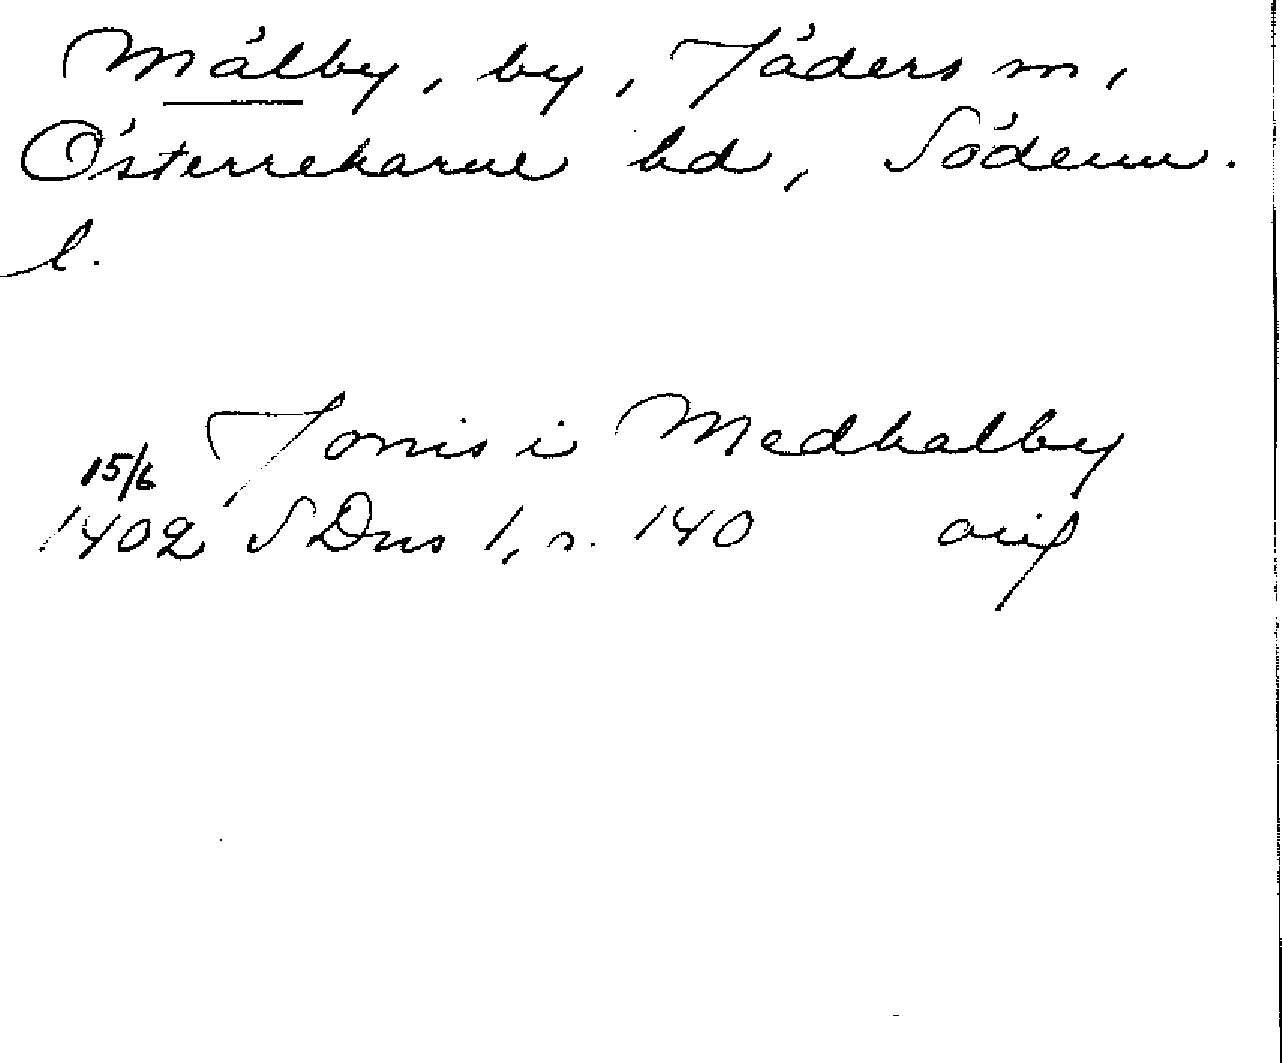 Mälby, by, Jäders sn,
Österrekarne hd, Söderm.
l.
Jonis i Medhalby
15/6
1402 SDns 1, s. 140 orig